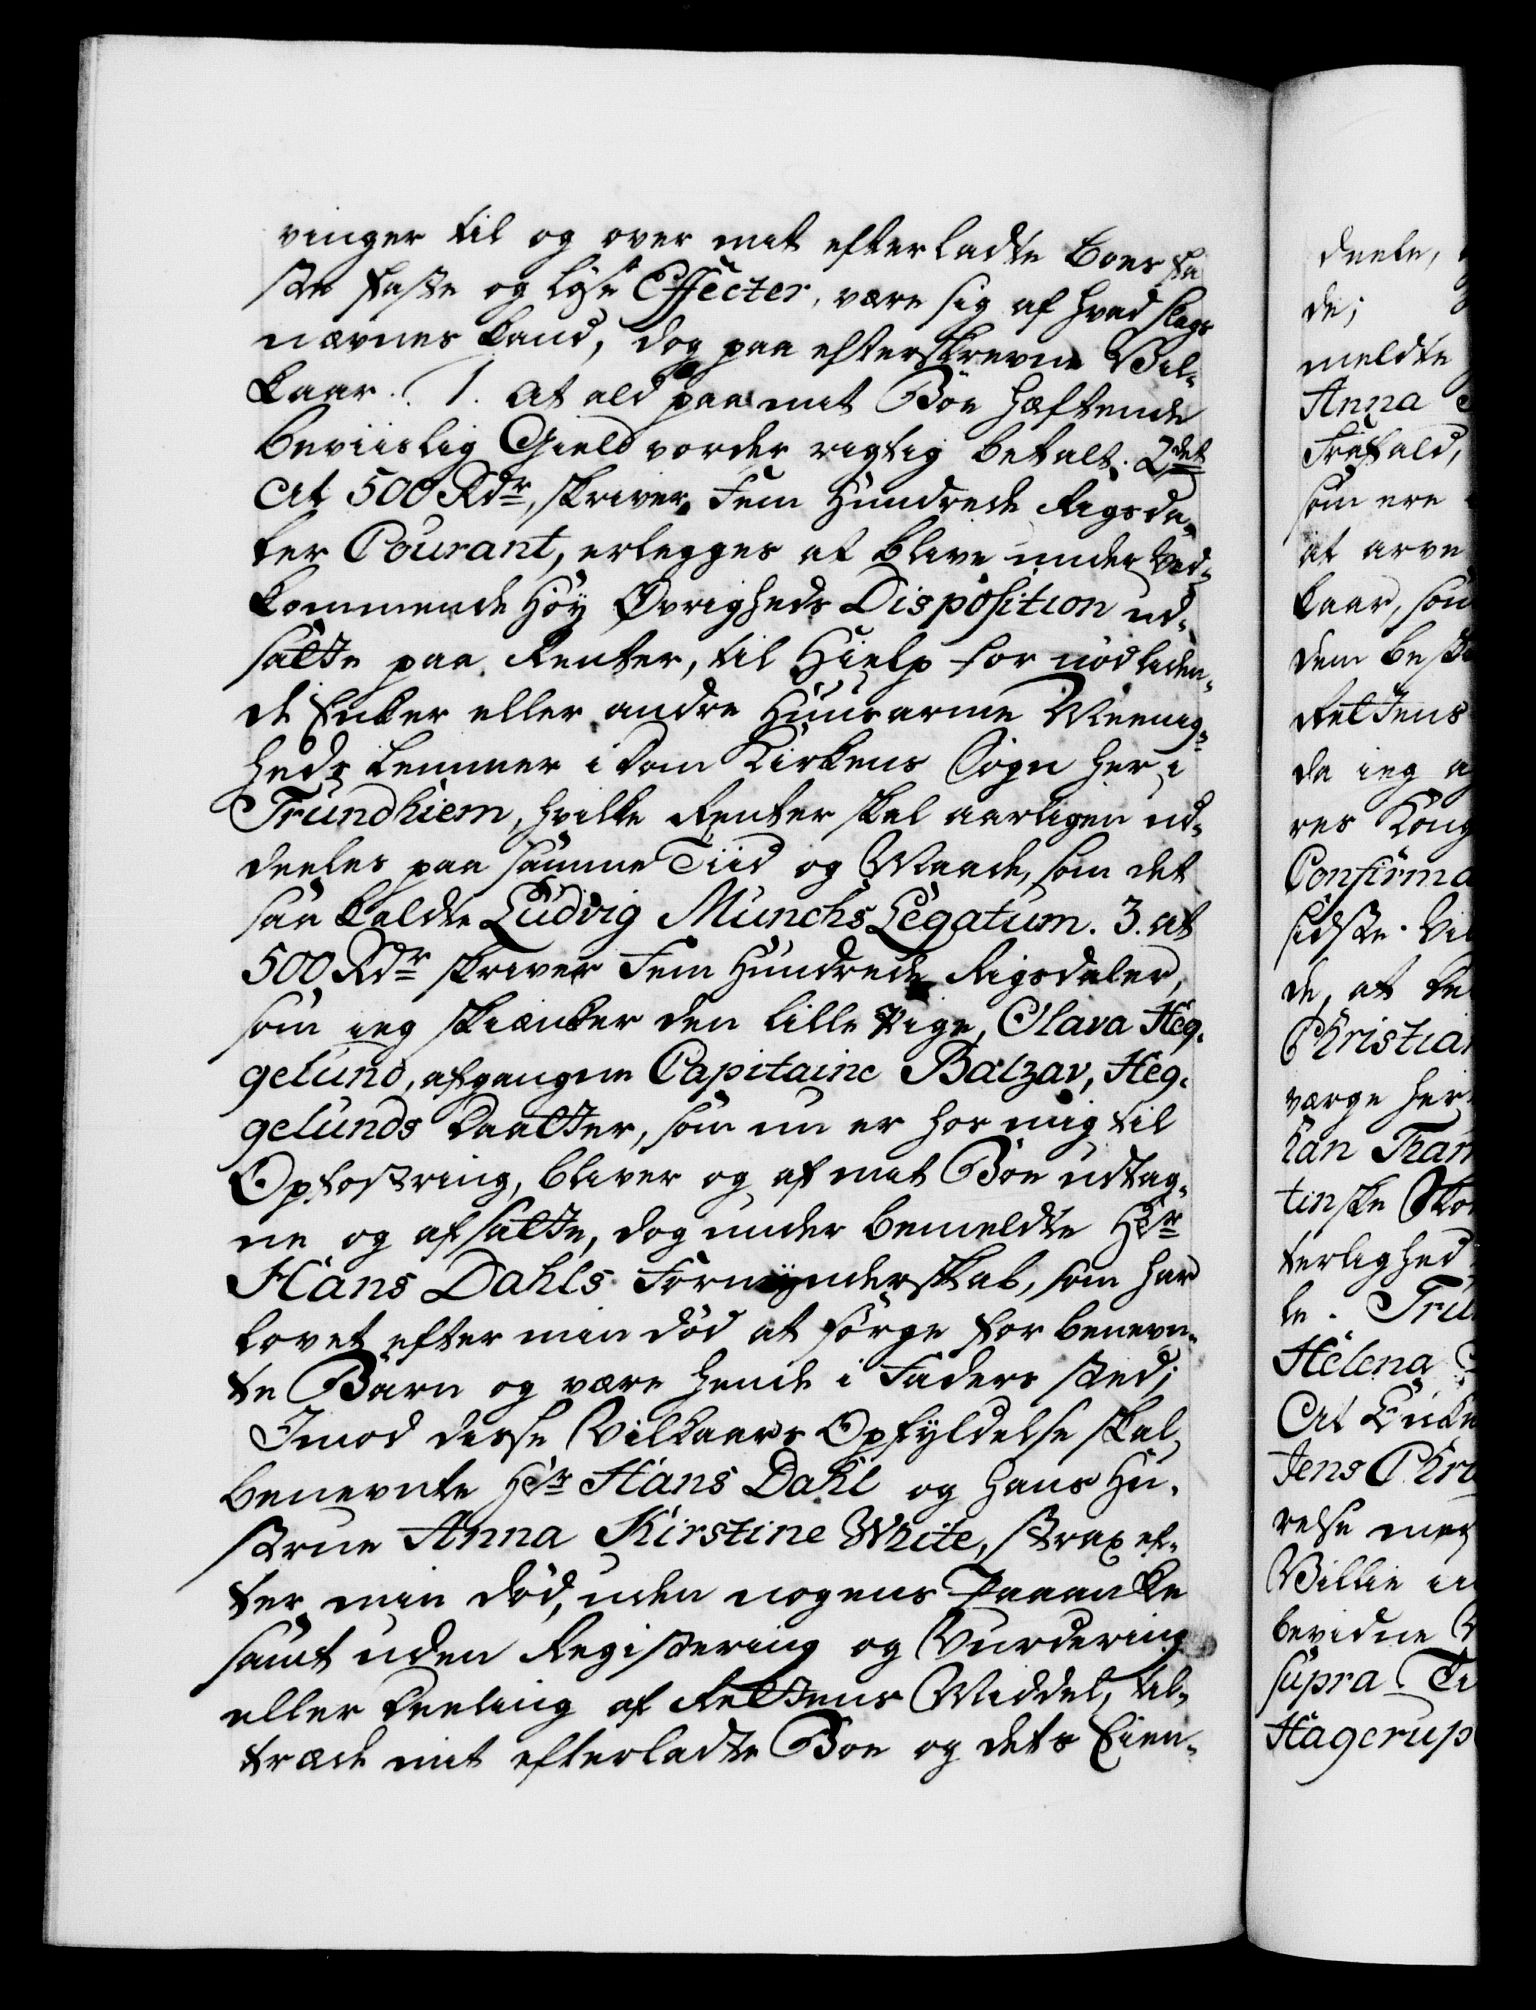 vinger til og over mit efterladte Boes fa
ste faste og løse Effecter, være sig af hvad slags
nævnes kand, dog paa efterskrevne Vil-
kaar. 1. At ald paa mit Boe hæftende
beviislig Gield vorder rigtig betalt. 2det
At 500 Rdr, skriver Fem Hundrede Rigsda-
ler Courant, erlegges at blive under Ved-
kommende Høy Øvrigheds Disposition ud-
satte paa Renter, til Hielp for nødliden-
de Enker eller andre Huusarme Meenig-
heds Lemmer i Dom Kirkens Sogn her i
Trundhiem, hvilke Renter skal aarligen ud-
deeles paa samme Tiid og Maade, som det
saa kaldte Ludvig Munchs Legatum. 3. at
500 Rdr skriver Fem Hundrede Rigsdaler,
som ieg skiænker den lille Pige, Olava Heg-
gelund, afgangne Capitaine Balzar, Heg-
gelunds Daatter, som nu er hos mig til
Opfostring, bliver og af mit Boe udtag-
ne og afsatte, dog under bemeldte Hr
Hans Dahls Formynderskab, som har
lovet efter min død at sørge for benevn-
te Barn og være hende i Faders sted;
Imod disse Vilkaars Opfyldelse skal
benevnte Hr Hans Dahl og hans Hu-
strue Anna Kirstine White, strax ef-
ter min død, uden nogens Paaanke
samt uden Registering og Vurdering
eller Deeling af Rettens Middel, til-
træde mit efterladte Boe og dets Eien-
deele,
de;
meldte
Anna
Frafald,
som ere
at arve
kaar, som
dem best
Rettens
da ieg
res Kong
Confirma
sidste Vil
de, at
Christian
værge her
han
tinske
terlighed
le.
Helena
At
Jens Chri
relse
Villie
bevidne
supra
Hagerup